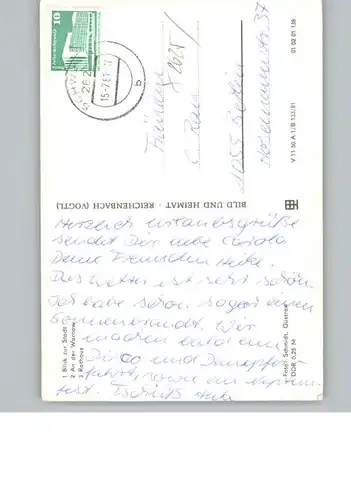 10
SCHW
262
15-7.8
b
Fräulein
C. Rau
1055 Berlin
Hosemannstr. 37
01 02 01 136
V 11 50 A 1/B 135/81
BILD UND HEIMAT · REICHENBACH (VOGTL)
Herzlich Urlaubsgrüße
sendet Dir liebe Carola
Deine Freundin Heike.
Das Wetter ist sehr schön.
Ich habe schon sogar einen
Sonnenbrand. Wir
machen bald eine
Disco und Dampfer-
fahrt,
Tschüß Heike
1 Blick zur Stadt
2 An der Warnow
3 Rathaus
Foto: Schmidt, Güstrow
DDR 0,25 M